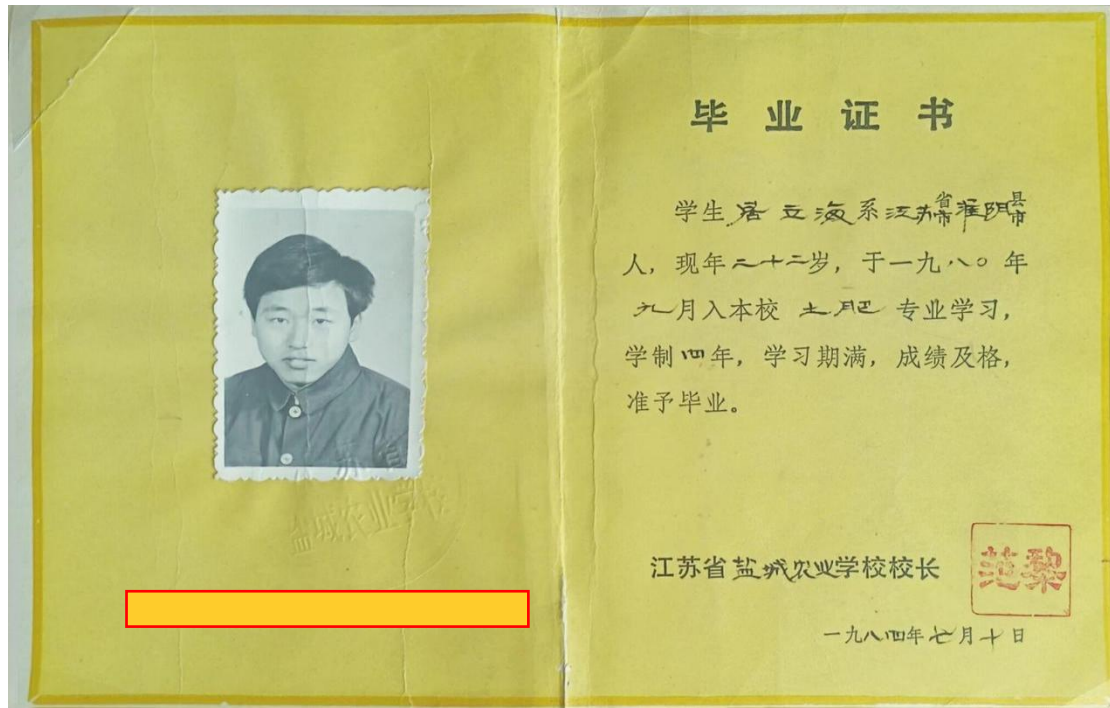 江苏省
盐城农业学校
毕业证书
学生居立海系江苏省市淮阴县市
人，现年二十二岁，于一九八〇年
九月入本校土肥专业学习，
学制四年，学习期满，成绩及格，
准予毕业。
江苏省盐城农业学校校长
范黎
一九八四年七月十日